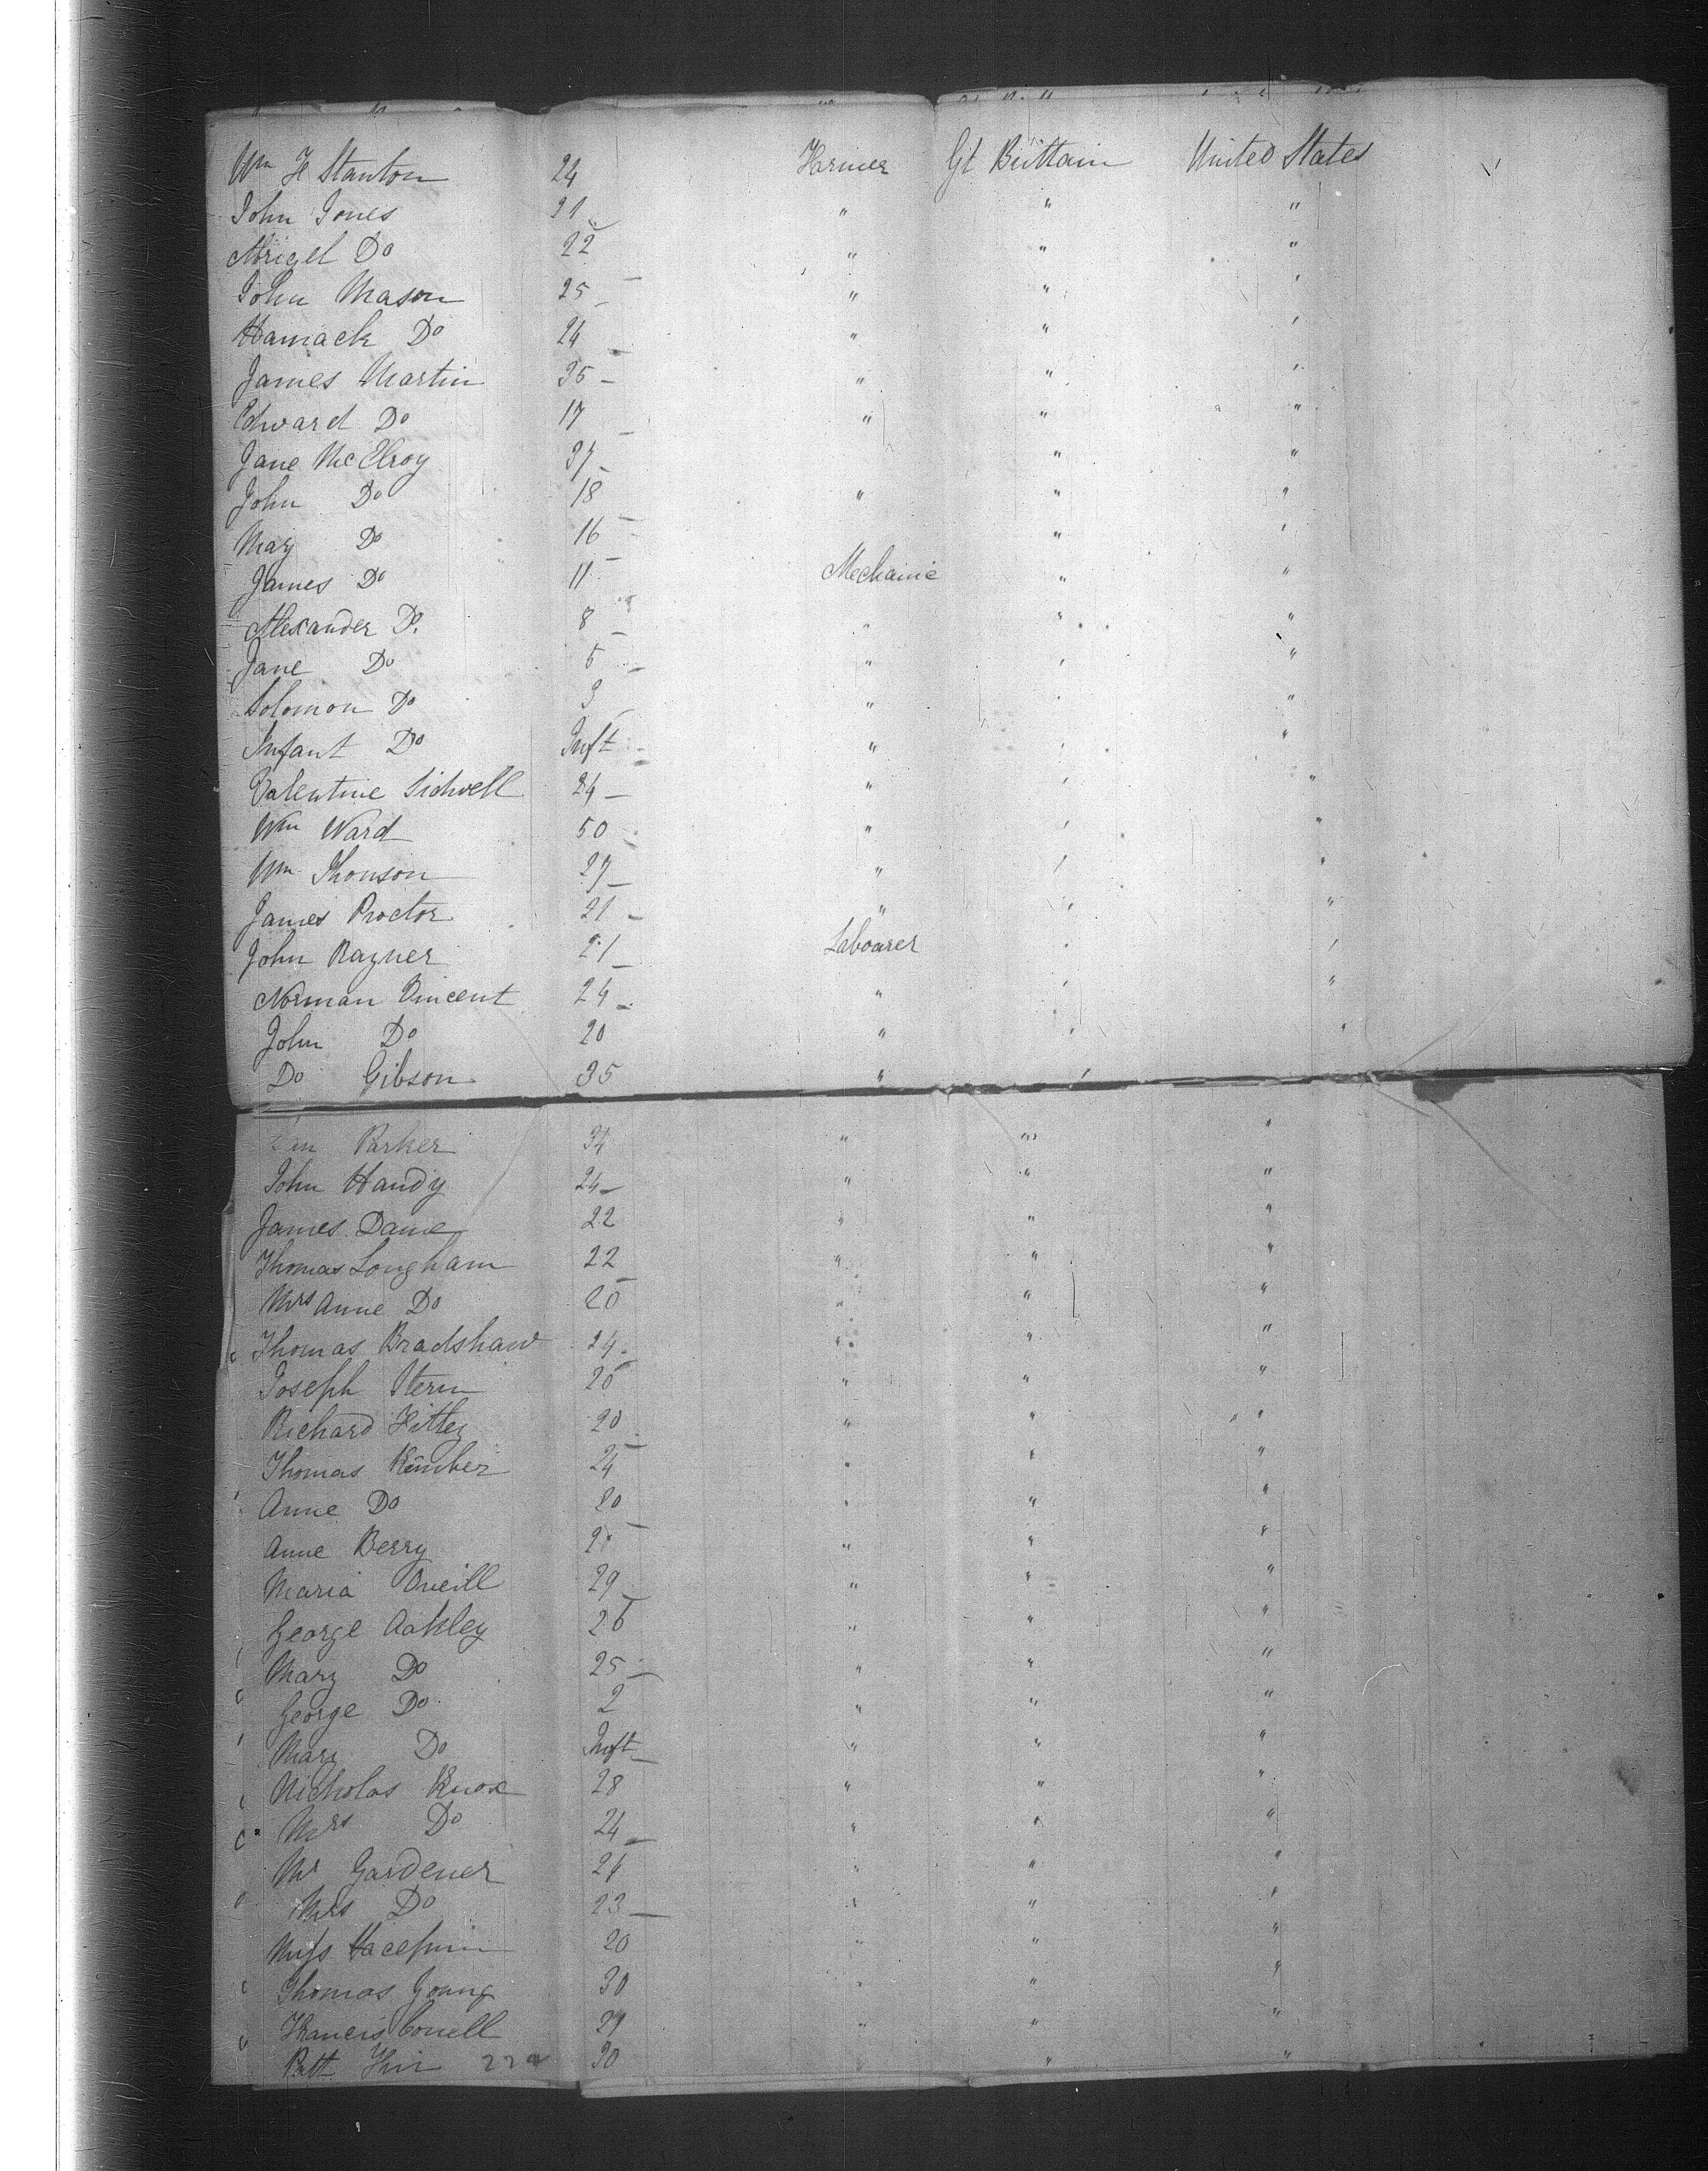 Wm H Stanton 24 Farmer Gt Brittain United States
John Jones 21 " " "
Abigel Do 22 " " "
John Mason 25 " " "
Hamack Do 24 " " "
James Martin 35 " " "
Edward Do 17 " " "
Jane McElroy 37 " "
John Do 18 " " "
Mary Do 16 " "
James Do 11 Mechanic " "
Alexander Do. 8 " " "
Jane Do 5 " " "
Solomon Do 3 " " "
Infant Do Inft " " "
Valentine Sidwell 24 " " "
Wm Ward 50 " " "
Wm Thonson 27 " " "
James Proctor 21 " " "
John Rayner 21 Labourer " "
Norman Vincent 24 " " "
John Do 20 " " "
Do Gibson 35 " "
Parker 34 " " "
John Handy 24 " " "
James Dame 22 " " "
Thomas Longham 22 " " "
Mrs Anne Do 20 " " "
Thomas Bradshaw 24 " " "
Joseph Stern 26 " " "
Richard 20 " " "
Thomas Kimber 24 " " "
Anne Do 20 " " "
Anne Berry " " "
Maria Oneill 29 " " "
George Oakley 26 " " "
Mary Do 25 " " "
George Do 2 " " "
Mary Do Inft " " "
Nicholas Knox 28 " " "
Mrs Do 24 " " "
Mr Gardener 24 " " "
Mrs Do 23 " " "
Miss 20 " " "
Thomas Young 30 " " "
Francis Conell 29 " " "
Patt 30 " " "